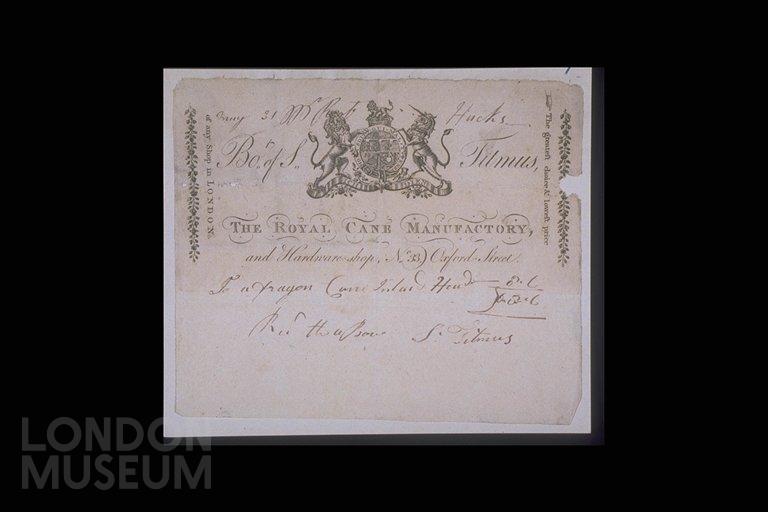 31 Mr Hucks
Bot. of S. Titmus,
THE ROYAL CANE MANUFACTORY,
and Hardware-shop, No. 33, Oxford Street.
To a Cane Head 8-6
8-6
Recd the above S. Titmus
The greatest choice & lowest price
of any Shop in LONDON.
LONDON
MUSEUM